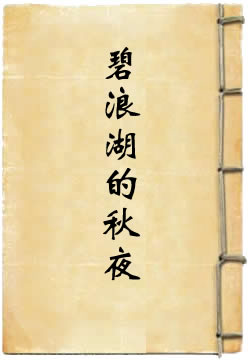 碧浪湖的秋夜